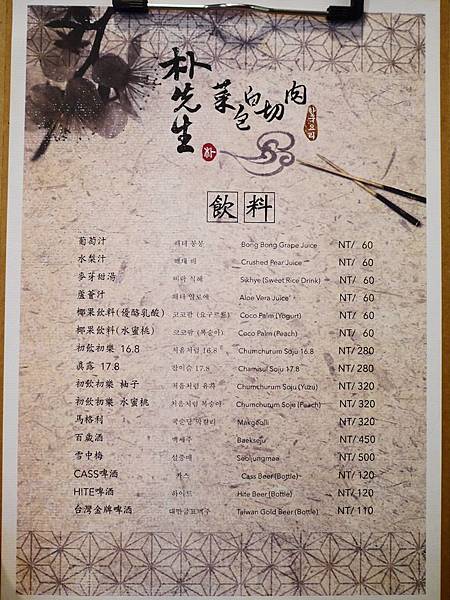 朴先生
菜包白切肉
한국요리
朴
飲料
葡萄汁 해태 봉봉 Bong Bong Grape Juice NT/ 60
水梨汁 해태 배 Crushed Pear Juice NT/ 60
麥芽甜湯 비락 식혜 Sikhye (Sweet Rice Drink) NT/ 60
蘆薈汁 해태 알로에 Aloe Vera Juice NT/ 60
椰果飲料(優酪乳酸) 코코팜 (요구르트) Coco Palm (Yogurt) NT/ 60
椰果飲料(水蜜桃) 코코팜 (복숭아) Coco Palm (Peach) NT/ 60
初飲初樂 16.8 처음처럼 16.8 Chumchurum Soju 16.8 NT/ 280
真露 17.8 참이슬 17.8 Chamisul Soju 17.8 NT/ 280
初飲初樂 柚子 처음처럼 유쟈 Chumchurum Soju (Yuzu) NT/ 320
初飲初樂 水蜜桃 처음처럼 복숭아 Chumchurum Soju (Peach) NT/ 320
馬格利 국순당 막걸리 Makgeolli NT/ 320
百歲酒 백세주 Baekseju NT/ 450
雪中梅 설중매 Seoljungmae NT/ 500
CASS啤酒 카스 Cass Beer (Bottle) NT/ 120
HITE啤酒 하이트 Hite Beer (Bottle) NT/ 120
台灣金牌啤酒 대만금표맥주 Taiwan Gold Beer (Bottle) NT/ 110